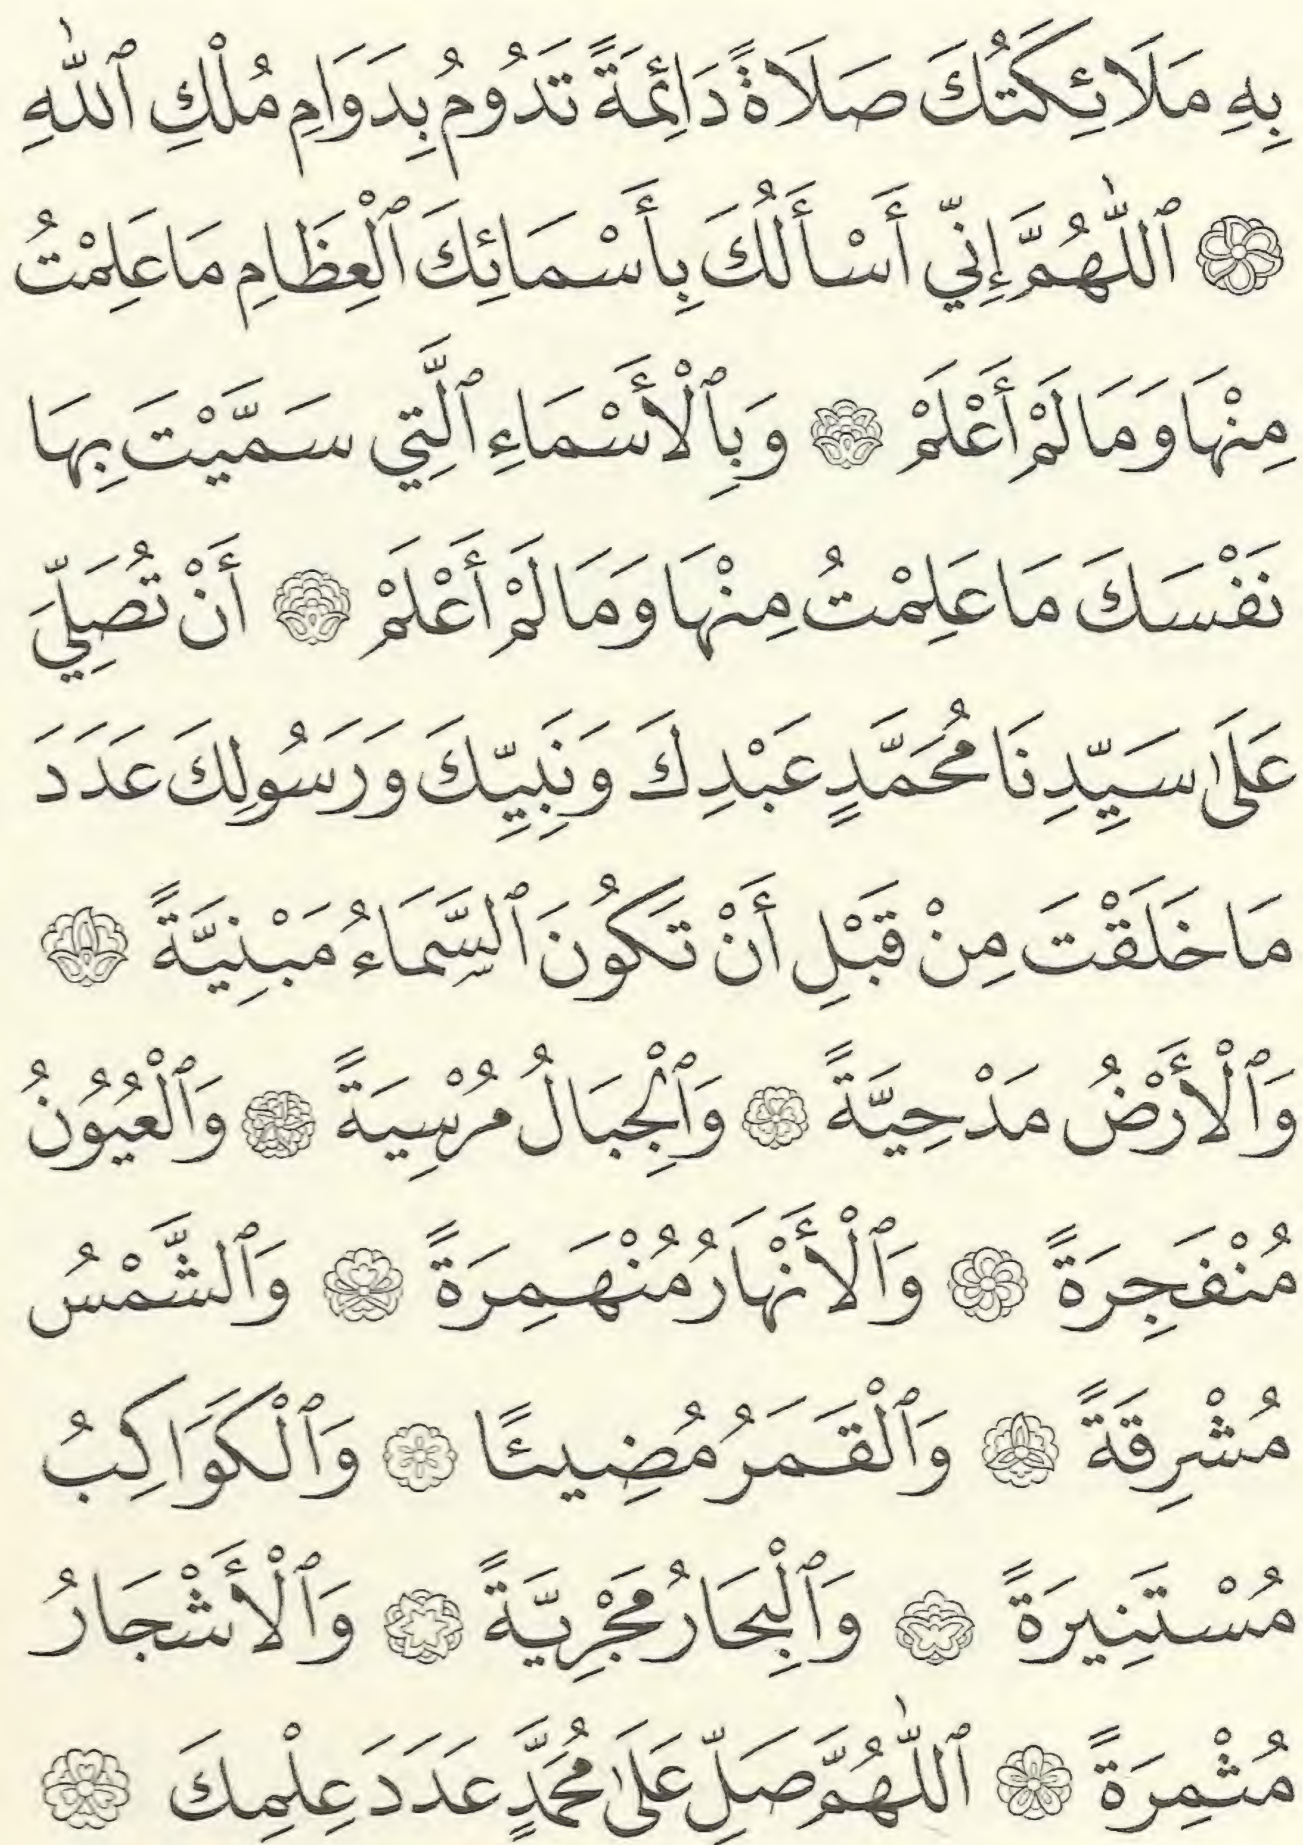 بِهِ مَلَائِكَتُكَ صَلَاةً دَائِمَةً تَدُومُ بِدَوَامِ مُلْكِ ٱللَّٰهِ
ٱللَّٰهُمَّ إِنِّي أَسْأَلُكَ بِأَسْمَائِكَ ٱلْعِظَامِ مَا عَلِمْتُ
مِنْهَا وَمَا لَمْ أَعْلَمْ وَبِٱلْأَسْمَاءِ ٱلَّتِي سَمَّيْتَ بِهَا
نَفْسَكَ مَا عَلِمْتُ مِنْهَا وَمَا لَمْ أَعْلَمْ أَنْ تُصَلِّيَ
عَلَىٰ سَيِّدِنَا مُحَمَّدٍ عَبْدِكَ وَنَبِيِّكَ وَرَسُولِكَ عَدَدَ
مَا خَلَقْتَ مِنْ قَبْلِ أَنْ تَكُونَ ٱلسَّمَاءُ مَبْنِيَّةً
وَٱلْأَرْضُ مَدْحِيَّةً وَٱلْجِبَالُ مُرْسِيَةً وَٱلْعُيُونُ
مُنْفَجِرَةً وَٱلْأَنْهَارُ مُنْهَمِرَةً وَٱلشَّمْسُ
مُشْرِقَةً وَٱلْقَمَرُ مُضِيئًا وَٱلْكَوَاكِبُ
مُسْتَنِيرَةً وَٱلْبِحَارُ مَجْرِيَّةً وَٱلْأَشْجَارُ
مُثْمِرَةً ٱللَّٰهُمَّ صَلِّ عَلَىٰ مُحَمَّدٍ عَدَدَ عِلْمِكَ